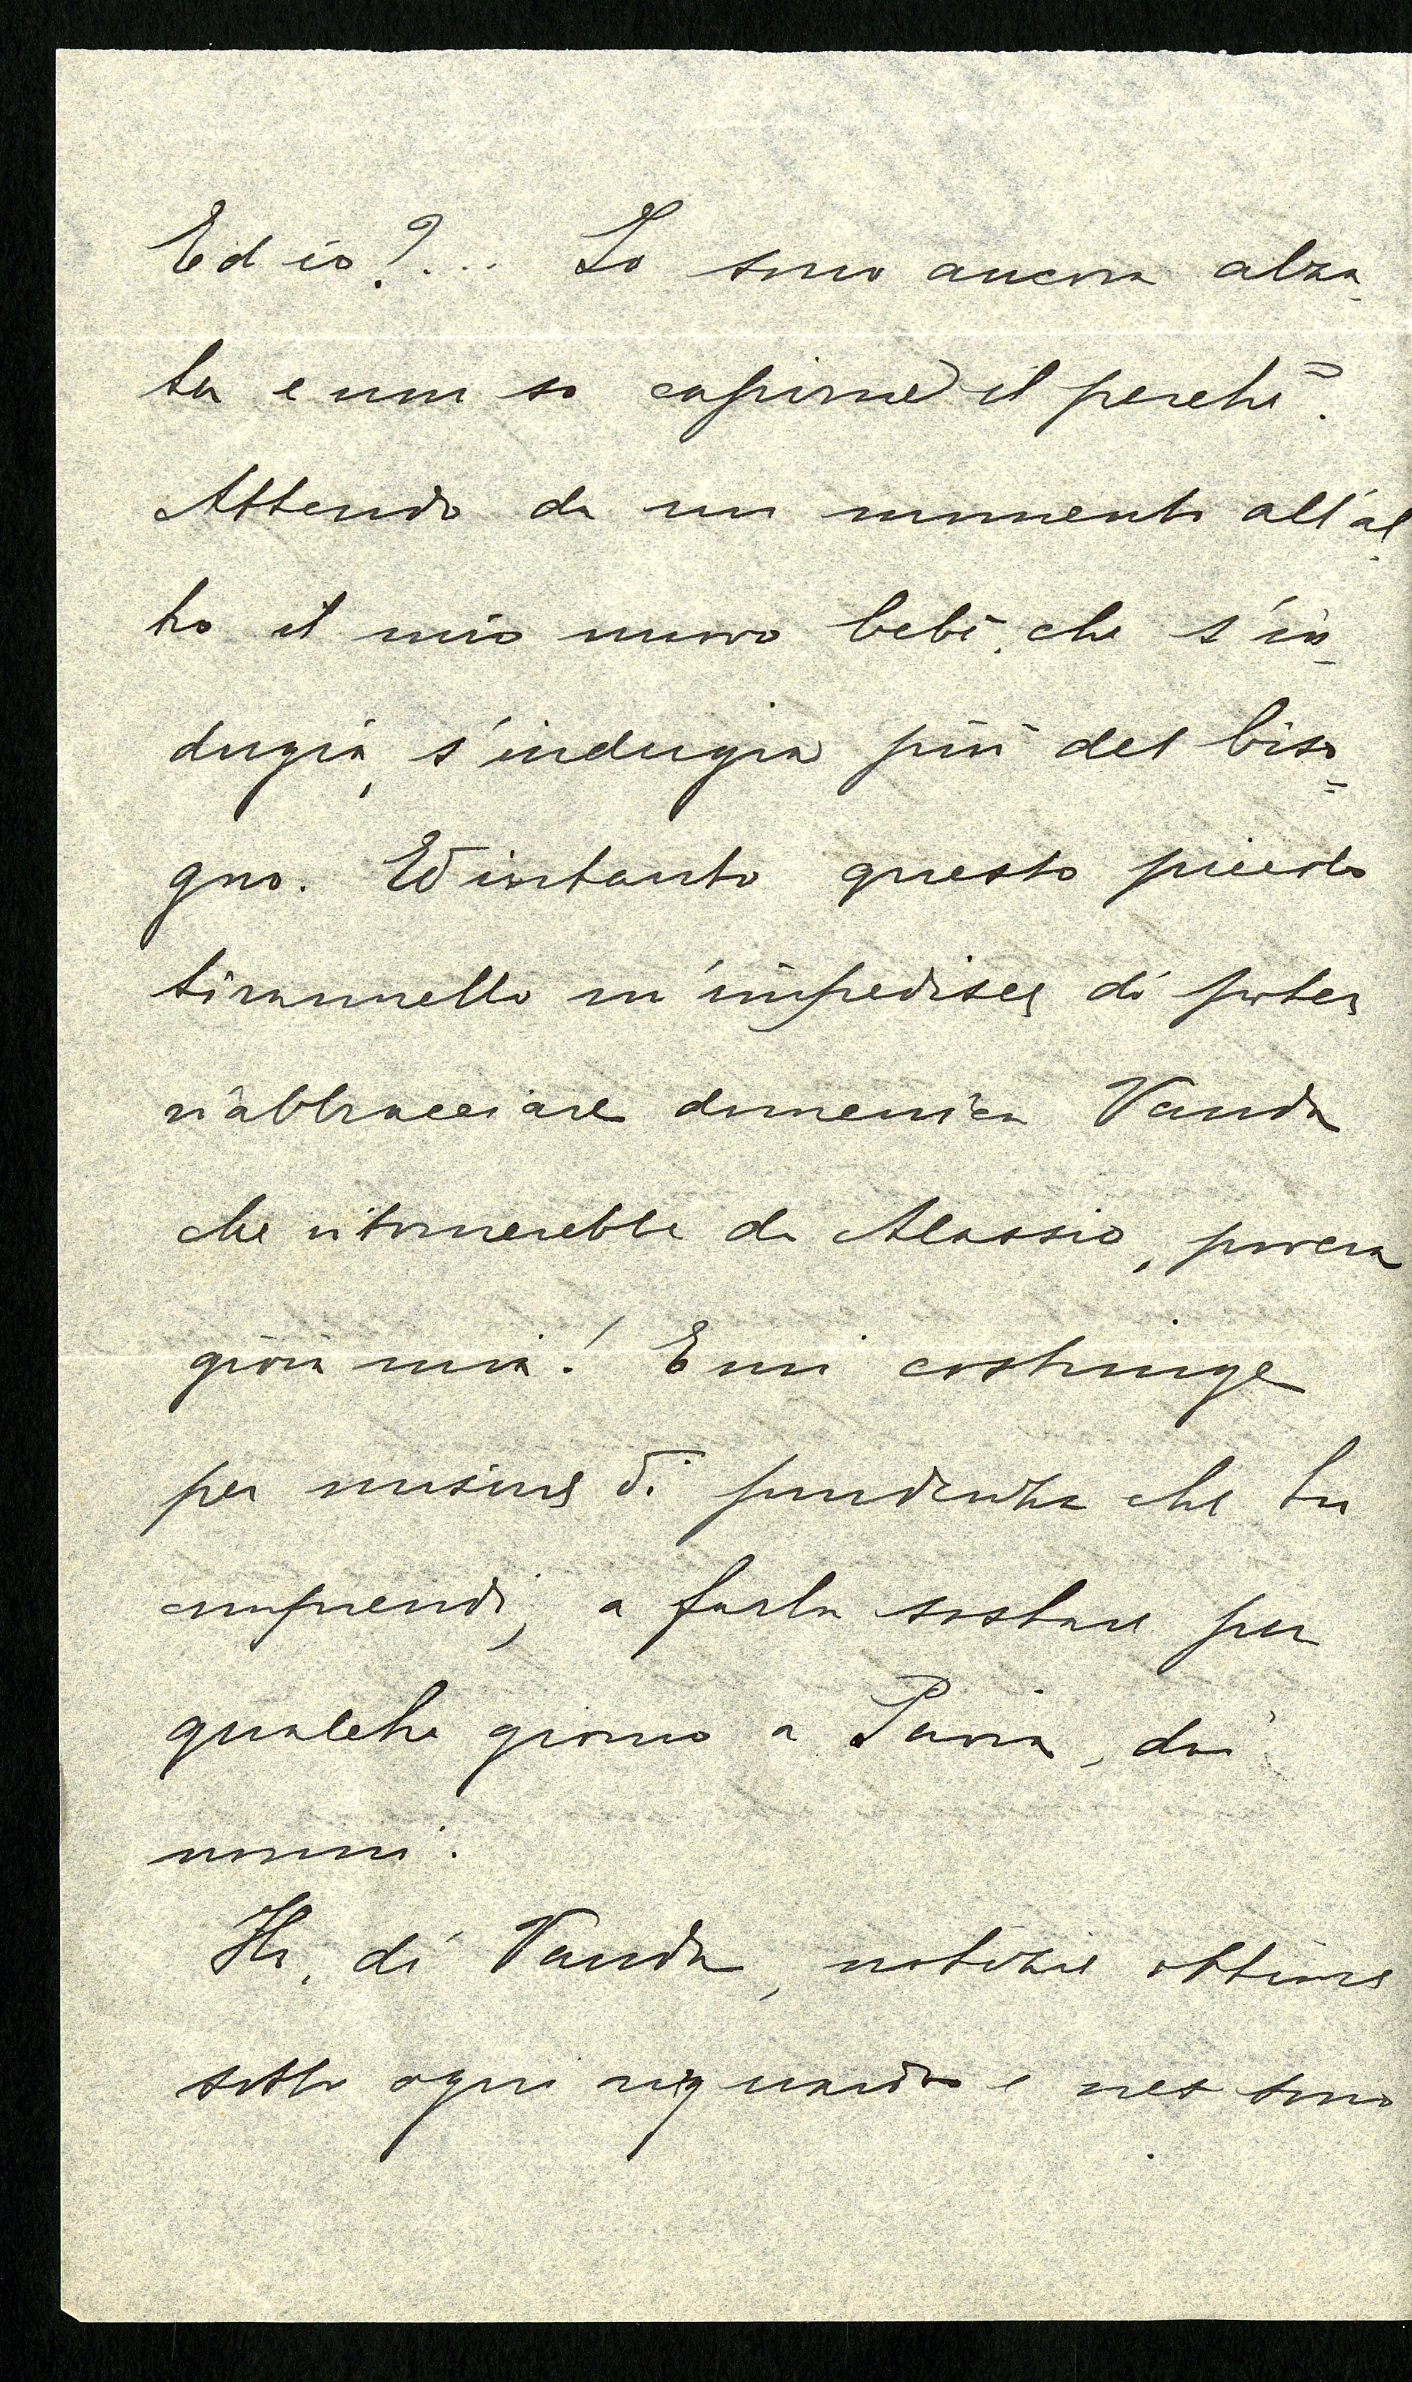 Ed io?... Io sono ancora alza-
ta e non so capirne il perchè.
Attendo da un momento all'al-
tro il mio nuovo bebè, che s'in-
dugia, s'indugia più del biso=
gno. Ed intanto questo piccolo
tirannello m'impedisce di poter
riabbracciare domenica Vanda
che ritornerebbe da Alassio, povera
gioia mia! E mi costringe
per misura di prudenza che tu
comprendi, a farla sostare per
qualche giorno a Pavia, dai
nonni.
Ho, di Vanda, notizie ottime
sotto ogni riguardo e ne sono